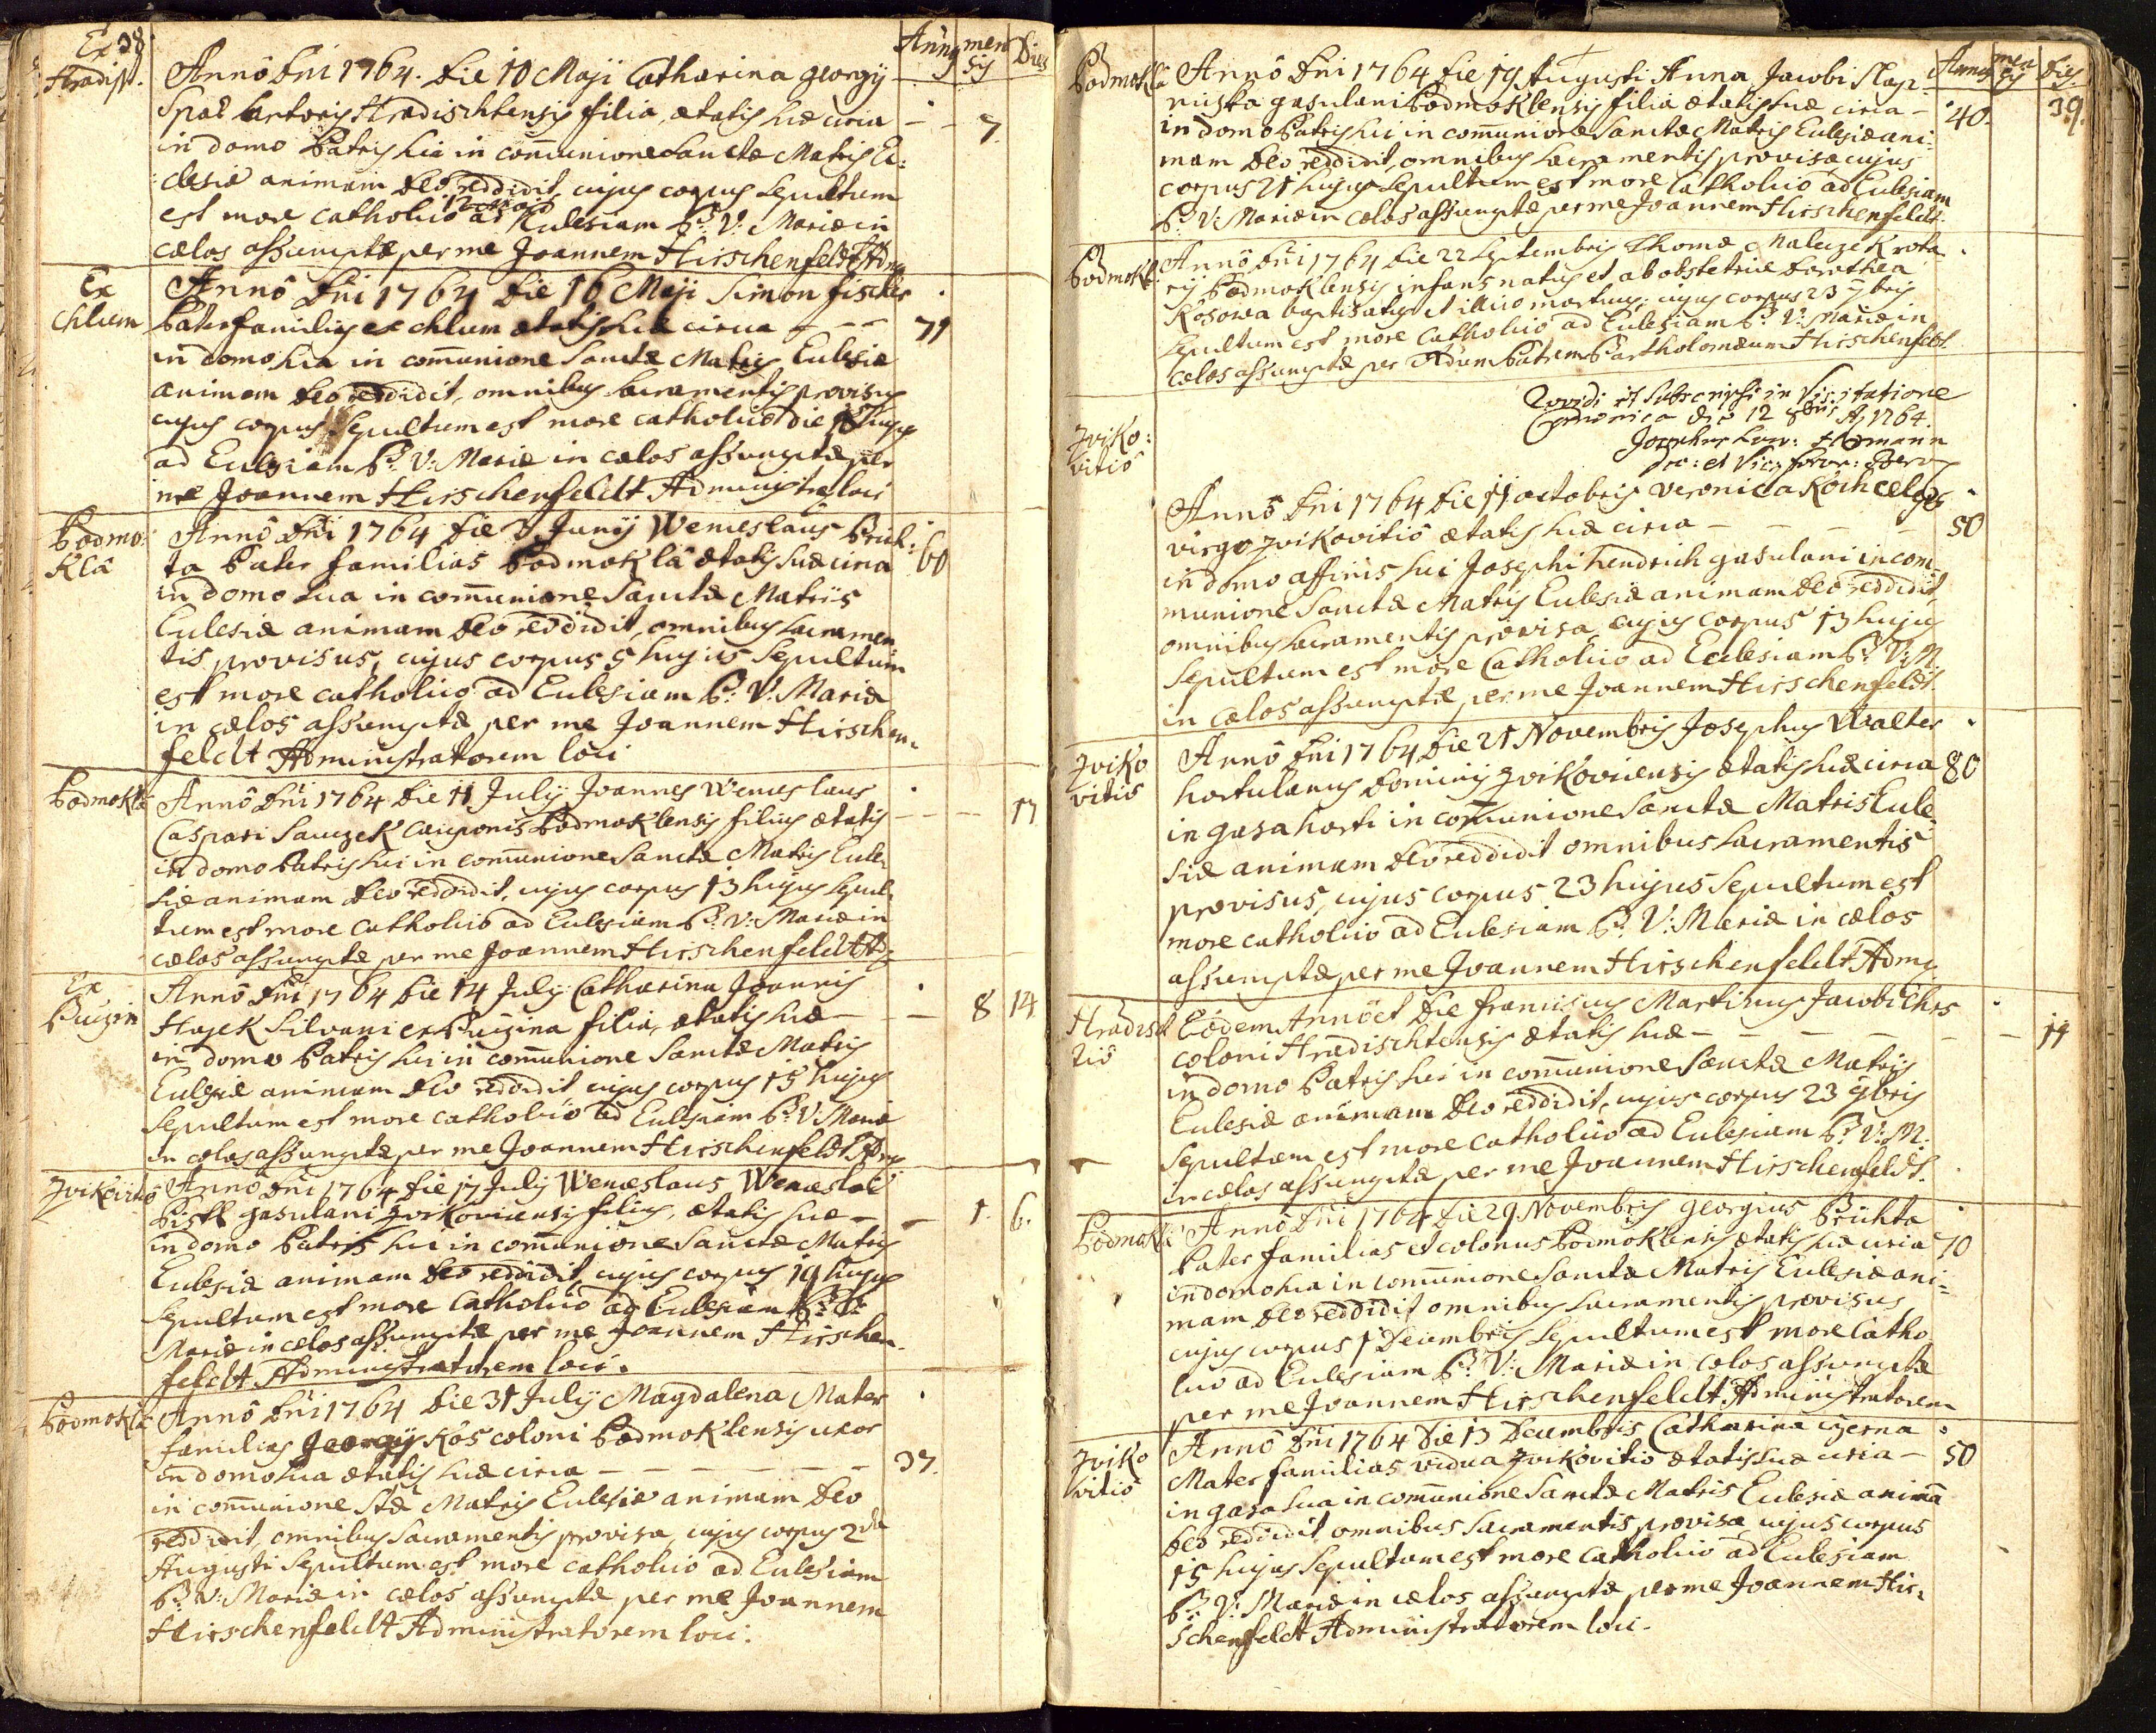 38
Ex
Hradist.
Annus men sis Dies
Annô Dni 1764. Die 10 Maji Catharina Georgij
Spat Hradischtensis filia, ætatis suæ circa — — 7.
in domo Patris sui in com̄unione Sanctæ Matris Ec:
clesiæ animam Deo reddidit, cujus corpus Sepultum
est more catholico 12 Maji ad Ecclesiam B: V: Mariæ in
cælos assumptæ per me Joannem Hirschenfeldt Adm
Ex
Chlum
Annô Dni 1764 Die 16 Maji Simon fischer
Paterfamilias ex chlum ætatis suæ circa — — 71
in domo sua in com̄unione Sanctæ Matris Ecclesiæ
animam Deo reddidit, omnibus sacramentis provisus
cujus corpus Sepultum est more catholico die 18 hujus
ad Ecclesiam B: V: Mariæ in cælos assumptæ per
me Joannem Hirschenfeldt Administra loci
Podmo:
klâ
Annô Dni 1764 Die 3 Junij Wenceslaus Prich:
ta Pater familias Podmoklâ ætatis suæ circa 60
in domo sua in com̄unione Sanctæ Matris
Ecclesiæ animam Deo reddidit, omnibus sacramen
tis provisus, cujus corpus 5 hujus Sepultum
est more catholico ad Ecclesiam B: V: Mariæ
in cælos assumptæ per me Joannem Hirschen:
feldt Administratorem loci
Podmoklâ
Annô Dni 1764 Die 11 July Joannes Wenceslaus
Caspari Sauczek cauponis Podmoklensis filius ætatis — — 17.
in domo Patris sui in com̄unione Sanctæ Matris Eccle:
siæ animam Deo reddidit, cujus corpus 13 hujus sepul:
tum est more catholico ad Ecclesiam B: V: Mariæ in
cælos assumptæ per me Joannem Hirschenfeldt Ad
Ex
Annô Dni 1764 Die 14 July Catharina Joannis
Hajek Silvani ex filia, ætatis suæ — — 8 14
in domo Patris sui in com̄unione Sanctæ Matris
Ecclesiæ animam Deo reddidit cujus corpus 15 hujus
Sepultum est more catholico ad Ecclesiam B: V: Mariæ
in cælos assumptæ per me Joannem Hirschenfeldt Adm
Zvikovitiô
Annô Dni 1764 Die 17 July Wenceslaus Wenceslai
gasulani Zvikovicensis filius, ætatis suæ — — 1. 6.
in domo Patris sui in com̄unione Sanctæ Matris
Ecclesiæ animam Deo reddidit, cujus corpus 19 hujus
Sepultum est more Catholico ad Ecclesiam B: V:
Mariæ in cælos assumptæ per me Joannem Hirschen
feldt Administratorem loci.
Podmoklâ
Annô Dni 1764 Die 31 July Magdalena Mater
familias Georgij Kos coloni Podmoklensis uxor
in domo sua ætatis suæ circa — — — — 37.
in com̄unione Stæ Matris Ecclesiæ animam Deo
reddidit, omnibus Sacramentis provisa, cujus corpus 2da
Augusti Sepultum est more catholico ad Ecclesiam
B: V: Mariæ in cælos assumptæ per me Joannem
Hirschenfeldt Administratorem loci.
Annus men sis Dies
39.
Podmoklâ
Annô Dni 1764 Die 19 Augusti Anna Jacobi Slap-
niczka gasulani Podmoklensis filia ætatis suæ circa — 40.
in domo Patris sui in com̄unione Sanctæ Matris Ecclesiæ ani:
mam Deo reddidit, omnibus sacramentis provisa, cujus
corpus 21 hujus Sepultum est more Catholico ad Ecclesiam
B: V: Mariæ in cælos assumptæ per me Joannem Hirschenfeldt.
Podmokl:
Annô Dni 1764 Die 22 Septembris Thomæ Maleczek rota
rij Podmoklensis infans natus et ab obstetrice Dorothea
Kosowa baptisatus et illico mortuus: cujus corpus 23 7bris
Sepultum est more Catholico ad Ecclesiam B: V: Mariæ in
cælos assumptæ per Adum Patrem Bartholomæum Hirschenfeldt.
Providi et Subscripsi in Visitatione
Canonica die 12 8bris A. 1764.
Josephus
Dec: et Vic: foran:
Zviko:
vitiô
Annô Dni 1764 Die 11 octobris Veronica
virgo Zvikovitiô ætatis suæ circa — — — 50
in domo affinis sui Josephi hendrich gasulani in com
munione Sanctæ Matris Ecclesiæ animam Deo reddidit
omnibus sacramentis provisa, cujus corpus 13 hujus
Sepultum est more Catholico ad Ecclesiam B: V: M.
in cælos assumptæ per me Joannem Hirschenfeldt.
Zviko
vitiô
Annô Dni 1764 Die 21 Novembris Josephus Walter
hortulanus Dominij Zvikovicensis ætatis suæ circa 80
in gasa horti in com̄unione Sanctæ Matris Eccle:
siæ animam Deo reddidit omnibus sacramentis
provisus, cujus corpus 23 hujus Sepultum est
more catholico ad Ecclesiam B: V: Mariæ in cælos
assumptæ per me Joannem Hirschenfeldt Adm
Hradisch
tiô
Eôdem Annô et Die franciscus Martinus Jacobi
coloni Hradischtensis ætatis suæ — — — — 14
in domo Patris sui in com̄unione Sanctæ Matris
Ecclesiæ animam Deo reddidit, cujus corpus 23 9bris
Sepultum est more catholico ad Ecclesiam B: V: M.
in cælos assumptæ per me Joannem Hirschenfeldt.
Podmoklâ
Annô Dni 1764 Die 29 Novembris Georgius Prichta
Pater familias et colonus Podmoklensis ætatis suæ circa 70
in domo sua in com̄unione Sanctæ Matris Ecclesiæ ani:
mam Deo reddidit omnibus sacramentis provisus
cujus corpus 1 Decembris Sepultum est more Catho
lico ad Ecclesiam B: V: Mariæ in cælos assumptæ
per me Joannem Hirschenfeldt Administratorem
Zviko
vitiô
Annô Dni 1764 Die 13 Decembris Catharina czerna
Mater familias vidua Zvikovitiô ætatis suæ circa — 50
in gasa sua in com̄unione Sanctæ Matris Ecclesiæ animā
Deo reddidit omnibus sacramentis provisa, cujus corpus
15 hujus Sepultum est more Catholico ad Ecclesiam
B: V: Mariæ in cælos assumptæ per me Joannem Hir:
schenfeldt Administratorem loci.